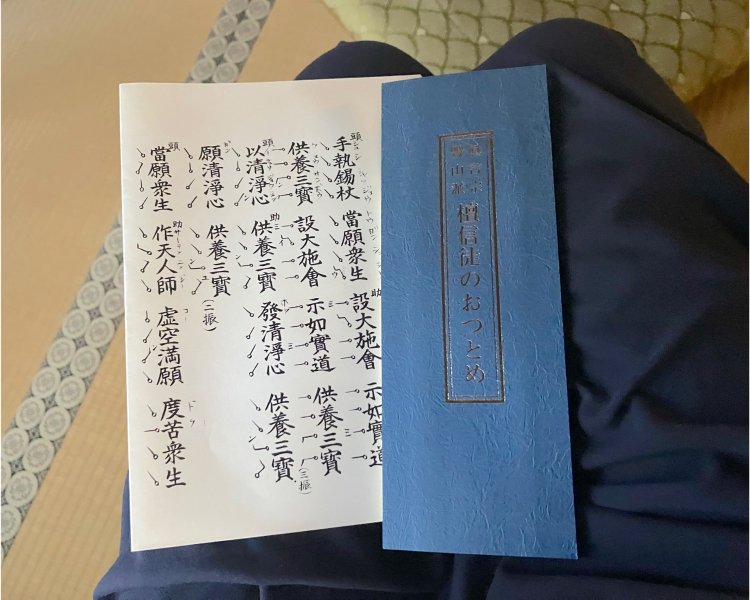 真言宗
豊山派
檀信徒のおつとめ
頭 手執錫杖 當願衆生 助 設大施會 示如實道
供養三寶 設大施會 示如實道 供養三寶(三振)
頭 以清淨心 助 供養三寶 發清淨心 供養三寶
願清淨心 供養三寶(二振)
頭 當願衆生 助 作天人師 虚空満願 度苦衆生